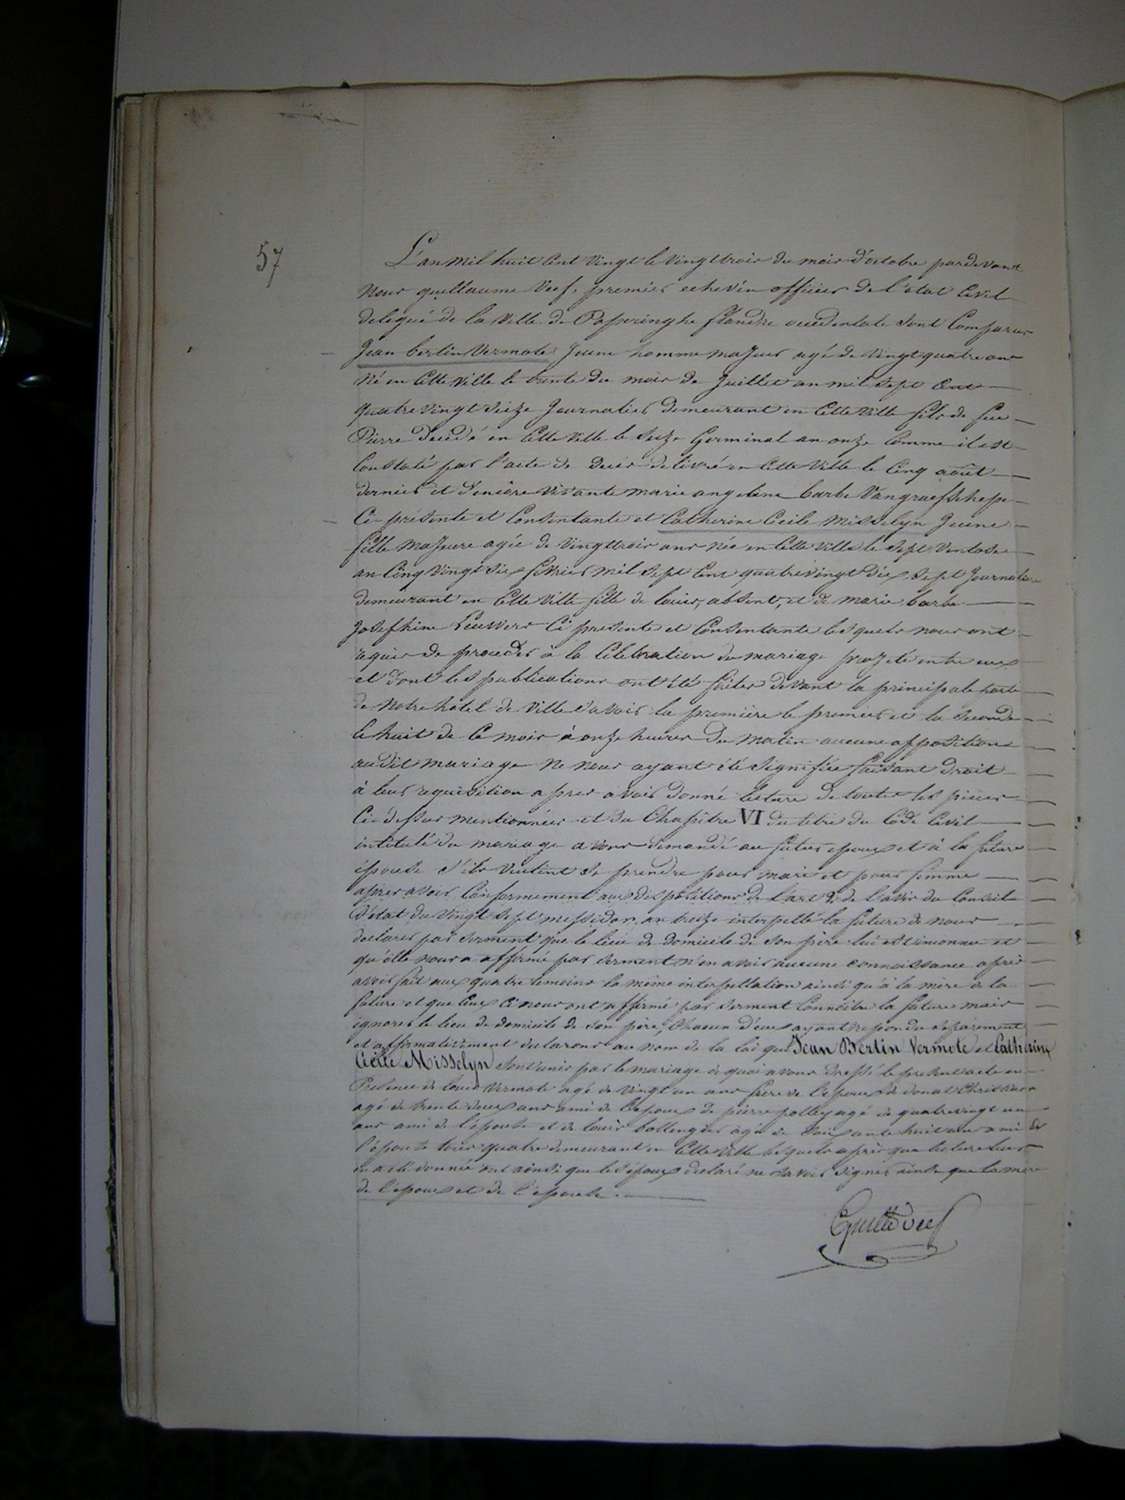 57
L'an mil huit cent vingt le vingttrois du mois d'octobre pardevant
nous guillaume Veef, premier echevin officier de l'etat Civil
delegué de la ville de Poperinghe flandre occidentale sont Comparus
Jean bertin Vermote jeune homme majeur agé de vingt quatre ans
né en Cette ville le trente du mois de Juillet an mil sept Cent
quatre vingt seize journalier demeurant en Cette ville fils de feu
Pierre decedé en Cette ville le seize Germinal an onze Comme il est
Constaté par l'acte de decès delivré en Cette ville le Cinq août
dernier et d'encore vivante marie angeline barbe Vangraefschepe
Ci-présente et Consentante et Catherine Cecile Misselyn Jeune
fille majeure agée de vingttrois ans née en Cette ville le sept Ventose
an Cinq vingt six fevrier mil sept Cent quatrevingt dix sept Journaliere
demeurant en Cette ville fille de louis, absent, et de marie barbe
Josephine Leuwers Ci presente et Consentante lesquels nous ont
requis de proceder à la Celebration du mariage projeté entre eux
et dont les publications ont été faites devant la principale porte
de notre hôtel de ville savoir la première le premier et la seconde
le huit de Ce mois à onze heures du matin aucune opposition
audit mariage ne nous ayant été signifiée faisant droit
à leur requisition apres avoir donné lecture de toutes les pièces
Ci-dessus mentionnées et du Chapitre VI du titre du Code Civil
intitulé du mariage avons demandé au futur epoux et à la future
epouse s'ils veulent se prendre pour mari et pour femme
apres avoir Conformement aux dispositions de l'art 2 de l'avis du Conseil
d'etat du vingt sept messidor an treize interpellé la future de nous
declarer par serment que le lieu de domicile de son père lui est inconnu et
qu'elle nous a affirmé par serment n'en avoir aucune connaissance apres
avoir fait aux quatre temoins la même interpellation ainsi qu'à la mère de la
future et que Ceux Ci nous ont affirmé par serment Connaitre la future mais
ignorer le lieu de domicile de son père, Chacun d'eux ayant repondu separement
et affirmativement declarons au nom de la loi que Jean Bertin Vermote et Catherine
Cecile Misselyn sont unis par le mariage de quoi avons dressé le present acte en
Presence de louis Vermote agé de vingt un ans frere de l'epoux de donat Christiaen
agé de trente deux ans ami de l'epoux de pierre polley agé de quatrevingt un
ans ami de l'epouse et de louis bollengier agé de soixante huit ans ami de
l'epouse tous quatre demeurant en Cette ville lesquels après que lecture leur
en a été donnée ont ainsi que les epoux declaré ne savoir signer ainsi que la mère
de l'epoux et de l'epouse.
Guill Veef